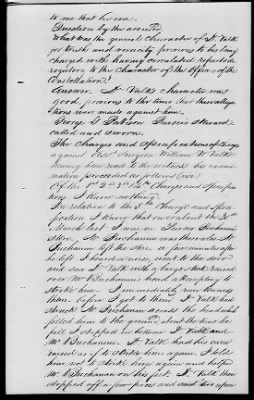 to me that his era.
Question by the accused
What was the general character of Lt Valk
for truth and veracity previous to his being
charged with having circulated reports
injurious to the character of the officers of the
Constellation?
Answer. Lt Valks character was
good, previous to the time that the allega
tions were made against him.
George S. Pursers steward
called and sworn.
The charges and specifications
against William W Valk
having been read to the witness the exami
nation proceeded as follows
Of the 1st 2d 3d 4th Charges and specifica
tions I know nothing.
In relation to the 5th Charge and speci
fication I know that on or about the
March last I was in Pursers
Store. Mr Buchanan was there also. Mr
Buchanan left the store. A few minutes after
he left I heard a noise, went to the door
and saw Lt Valk with a large stick raised
over Mr Buchanans head attempting to
strike him. I immediately ran towards
them. before I got to them Lt Valk had
struck Mr Buchanan across the head and
felled him to the ground. about the time he
fell I stepped in between Lt Valk and
Mr Buchanan. Lt Valk had his cane
raised as if to strike him again. I told
him not to strike him again and helped
Mr Buchanan on his feet. Lt Valk then
stepped off a few paces and said